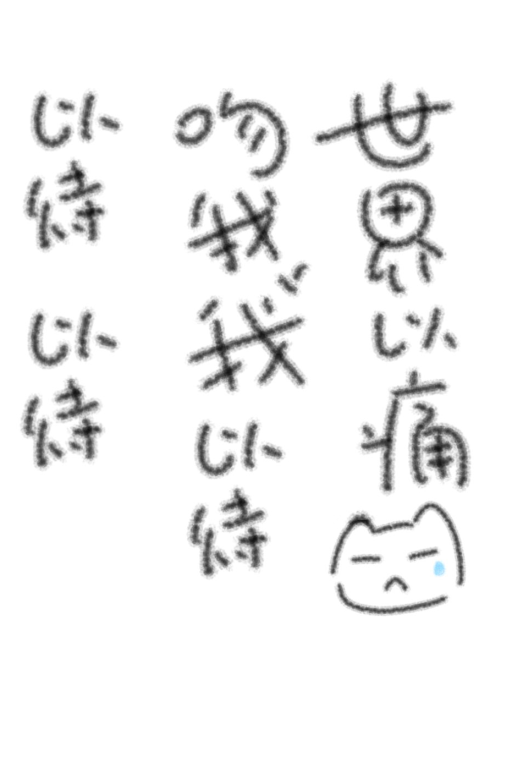 世界以痛
吻我我以待
以待以待